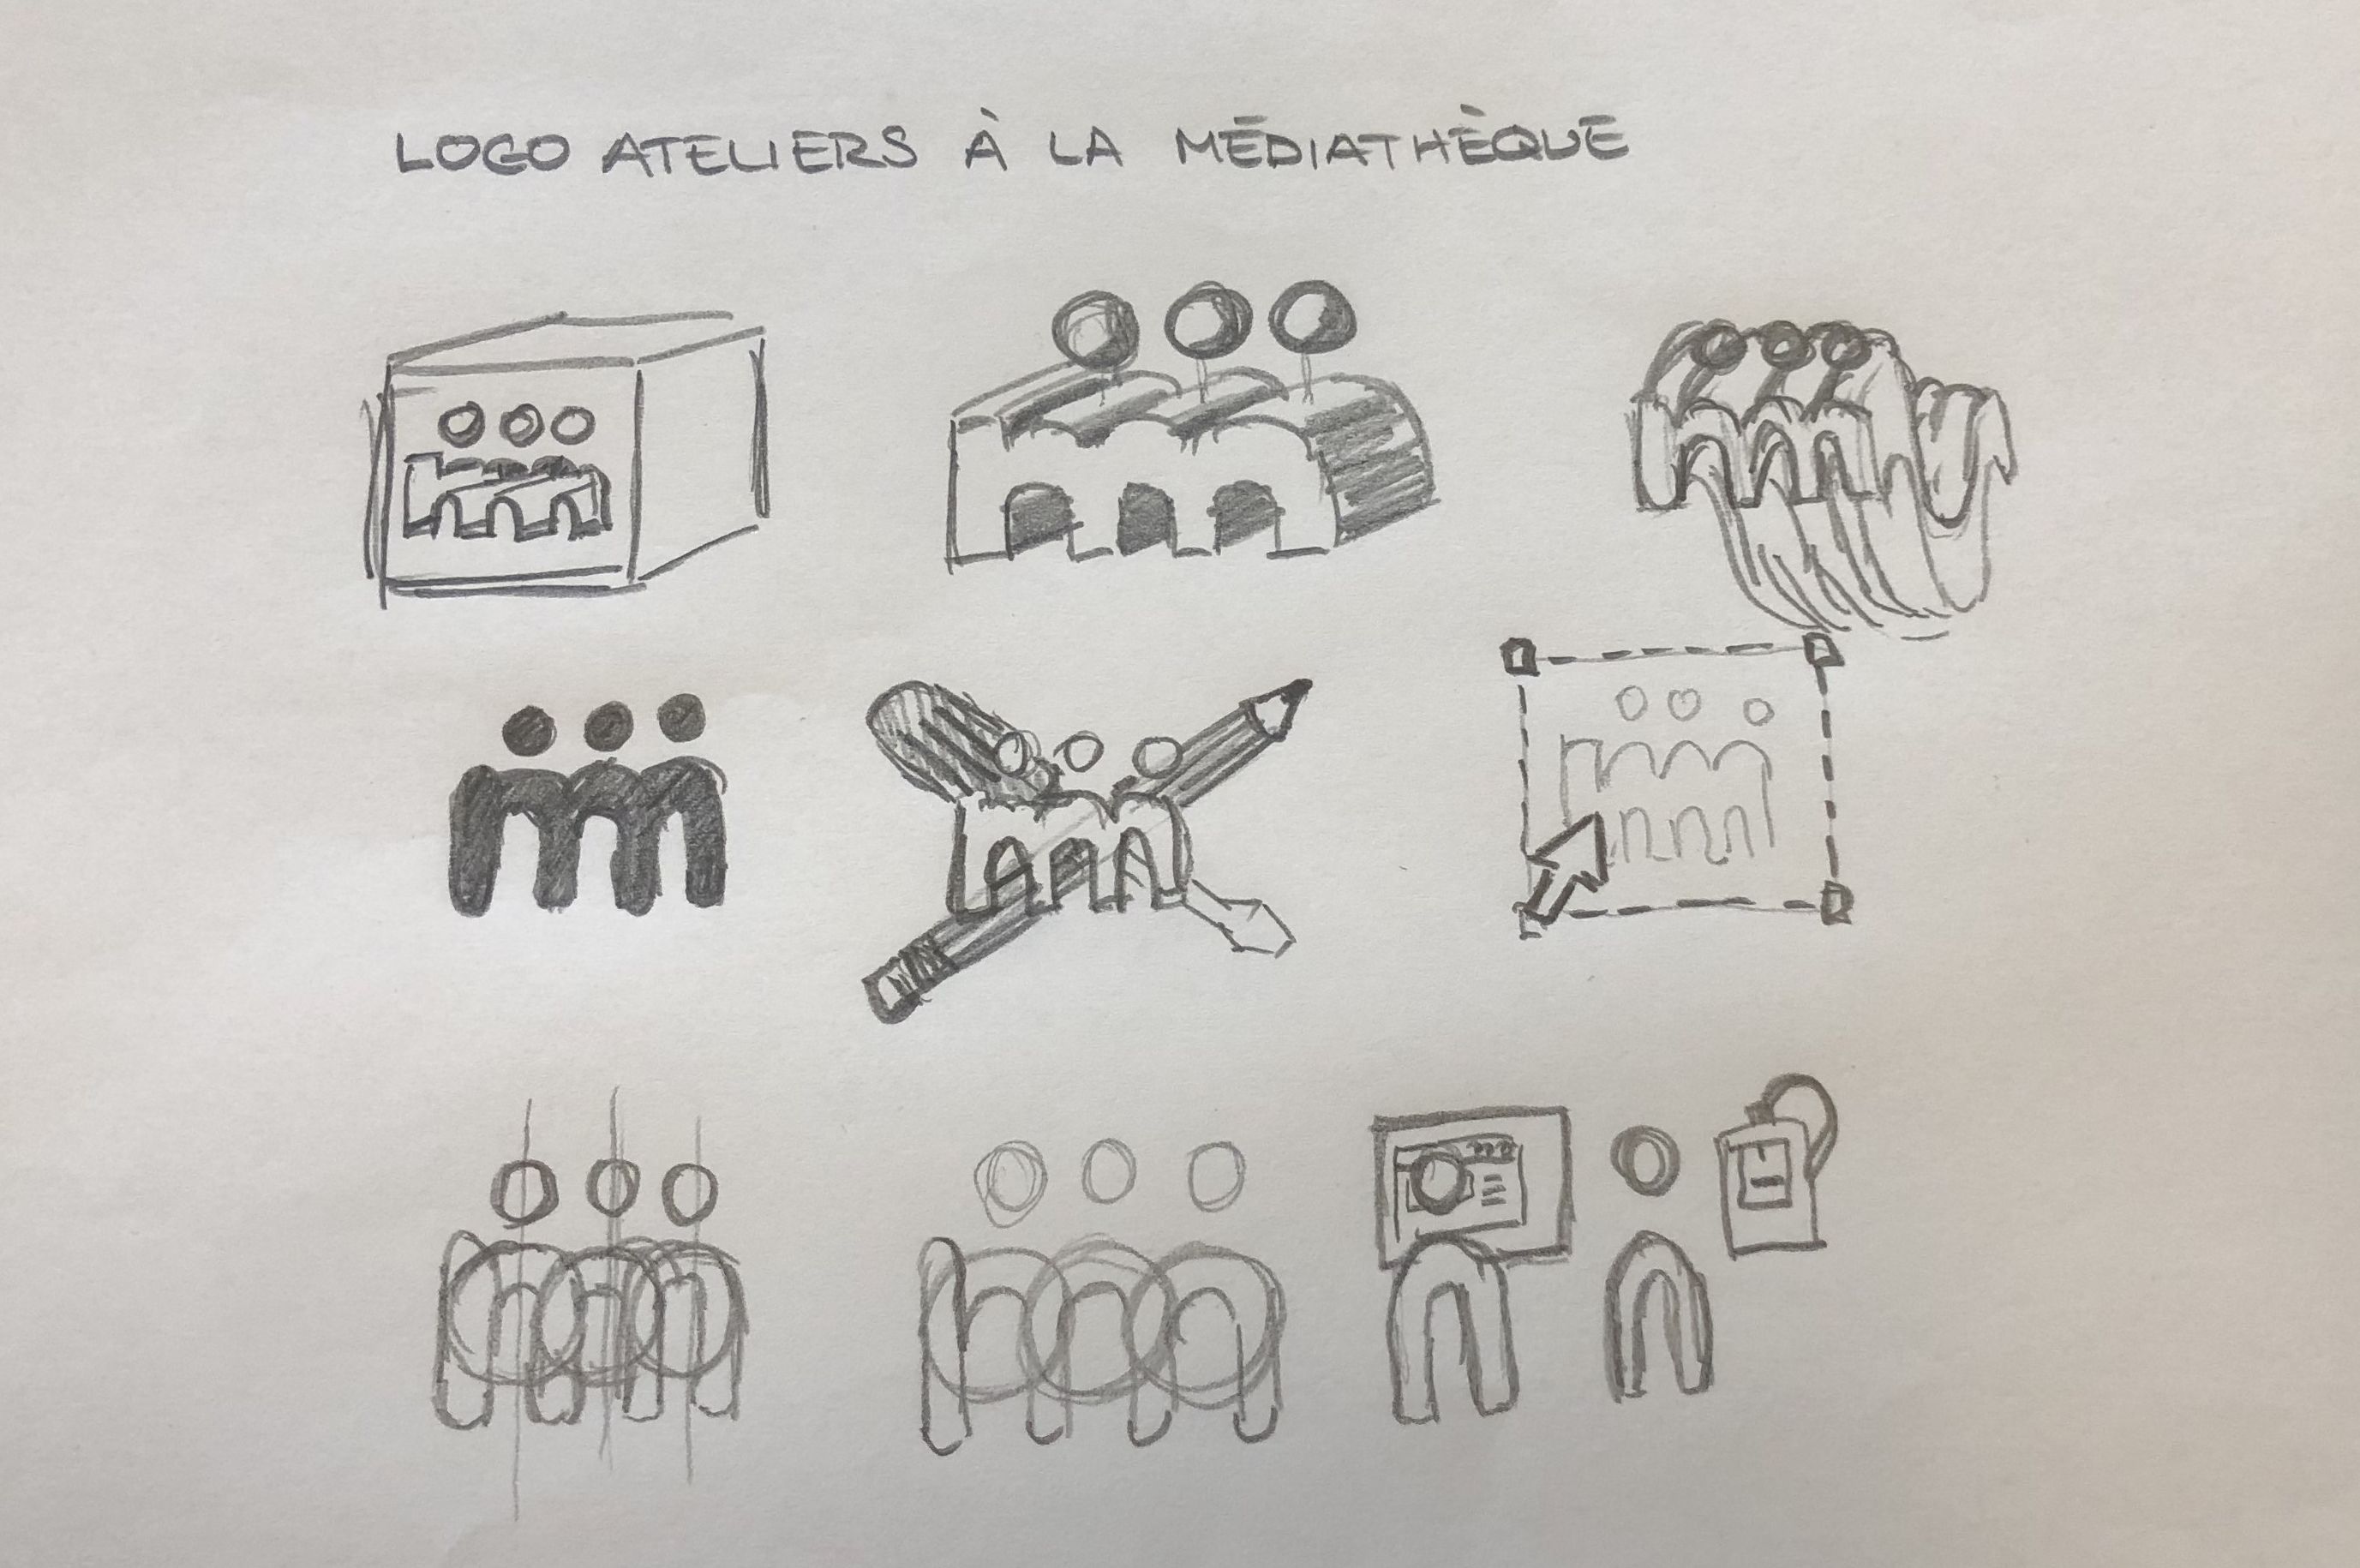 LOGO ATELIERS À LA MÉDIATHÈQUE